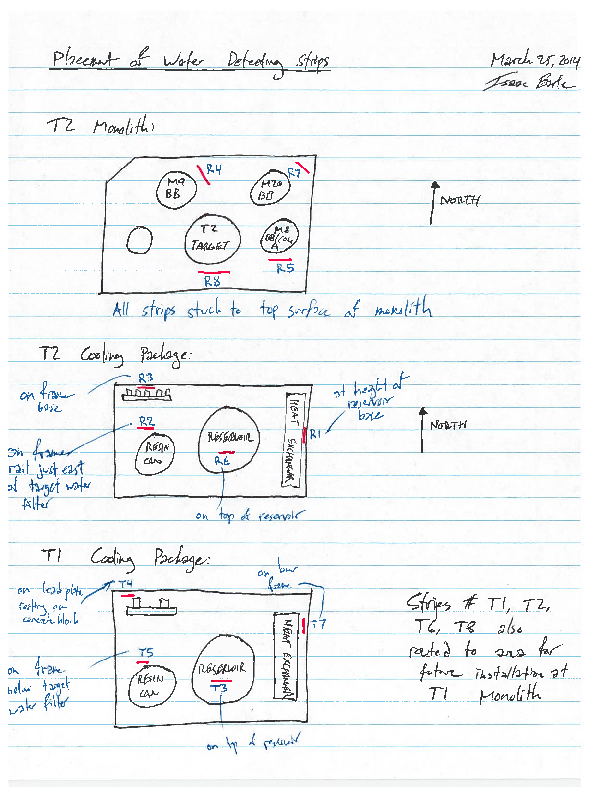 Placement of Water Detecting Strips
March 25, 2014
Isaac
T2 Monolith:
R4
R7
M9
BB
M20
BB
T2
TARGET
M8
BB/
A
R8
R5
NORTH
All strips stuck to top surface of monolith
T2 Cooling Package:
on frame
base
R3
at height of
reservoir
base
R2
on frame
rail just east
of target water
filter
RESIN
CAN
RESERVOIR
R6
HEAT EXCHANGER
R1
NORTH
on top of reservoir
T1 Cooling Package:
on lead plate
resting on
concrete block
T4
on
frame
T7
T5
on frame
below target
water filter
RESIN
CAN
RESERVOIR
T3
HEAT EXCHANGER
on top of reservoir
Strips # T1, T2,
T6, T8 also
routed to area for
future installation at
T1 Monolith